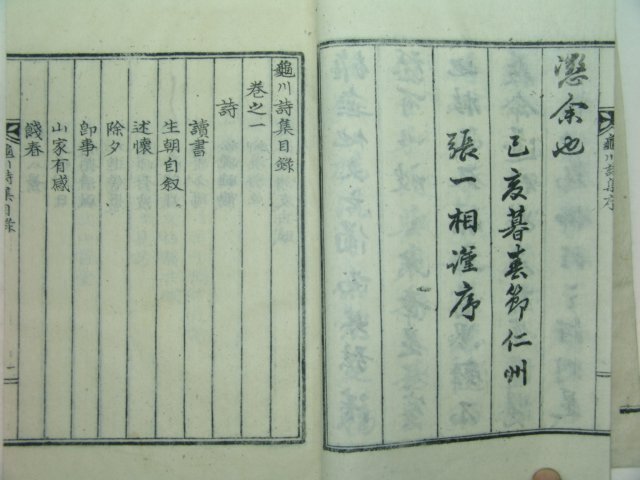 龜川詩集序
愍余也
己亥暮春節仁州
張一相謹序
龜川詩集目錄
卷之一
詩
讀書
生朝自叙
述懷
除夕
卽事
山家有感
餞春
龜川詩集目錄
一